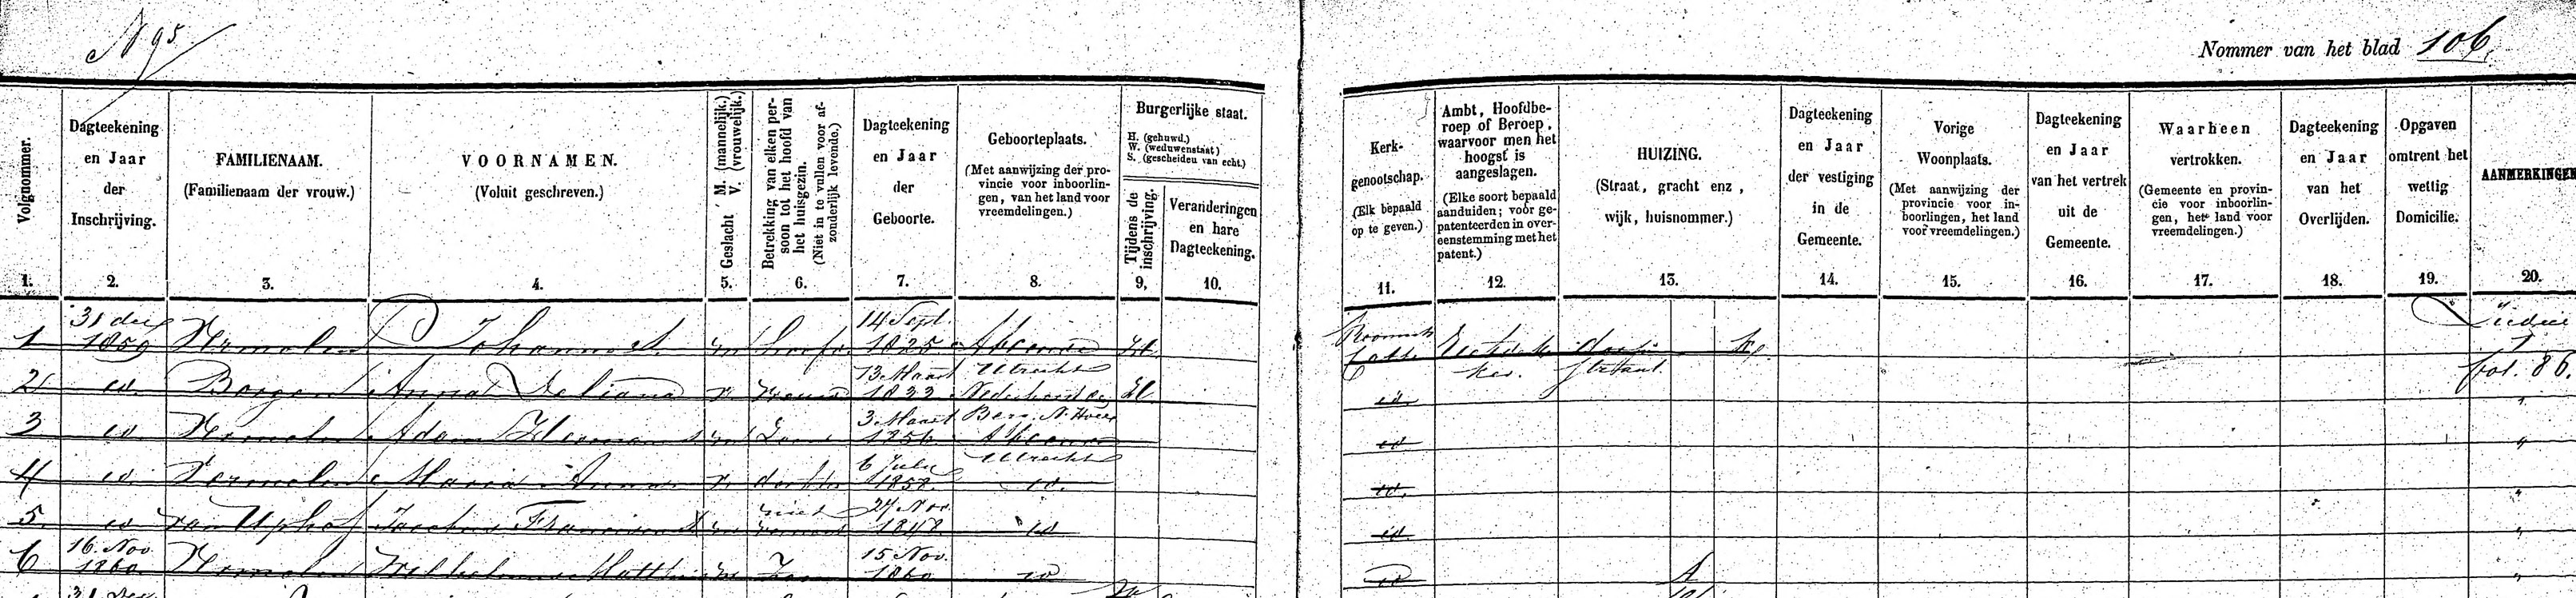 N 95
Nommer van het blad 106.
Volgnommer.
1.
Dagteekening
en Jaar
der
Inschrijving.
2.
FAMILIENAAM.
(Familienaam der vrouw.)
3.
VOORNAMEN.
(Voluit geschreven.)
4.
Geslacht M. (mannelijk.)
V. (vrouwelijk.)
5.
Betrekking van elken per-
soon tot het hoofd van
het huisgezin.
(Niet in te vullen voor af-
zonderlijk levende.)
6.
Dagteekening
en Jaar
der
Geboorte.
7.
Geboorteplaats.
(Met aanwijzing der pro-
vincie voor inboorlin-
gen, van het land voor
vreemdelingen.)
8.
Burgerlijke staat.
H. (gehuwd.)
W. (weduwenstaat)
S. (gescheiden van echt.)
Tijdens de
inschrijving.
9.
Veranderingen
en hare
Dagteekening.
10.
Kerk-
genootschap.
(Elk bepaald
op te geven.)
11.
Ambt, Hoofdbe-
roep of Beroep,
waarvoor men het
hoogst is
aangeslagen.
(Elke soort bepaald
aanduiden; voor ge-
patenteerden in over-
eenstemming met het
patent.)
12.
HUIZING.
(Straat, gracht enz,
wijk, huisnommer.)
13.
Dagteekening
en Jaar
der vestiging
in de
Gemeente.
14.
Vorige
Woonplaats.
(Met aanwijzing der
provincie voor in-
boorlingen, het land
voor vreemdelingen.)
15.
Dagteekening
en Jaar
van het vertrek
uit de
Gemeente.
16.
Waarheen
vertrokken.
(Gemeente en provin-
cie voor inboorlin-
gen, het land voor
vreemdelingen.)
17.
Dagteekening
en Jaar
van het
Overlijden.
18.
Opgaven
omtrent het
wettig
Domicilie.
19.
AANMERKINGEN
20.
1 31 dec 1859 Johannes m hoofd 14 Sept. 1825 Abcoude Utrecht H Roomsch Cath. straat
fol. 86.
2 id. Anna Juliana v vrouw 13 Maart 1822 Nederhorst den Berg N. Holl H id.
3 id Adam Herman m Zoon 3 Maart 1856 Abcoude Utrecht id
4 id Vermeulen Maria Anna v. dochter 6 July 1858 id. id.
5. id Jacobus Franciscus m 27 Nov. 1848 id id
6 16 Nov. 1860 Wilhelmus m Zoon 15 Nov. 1860 id id A